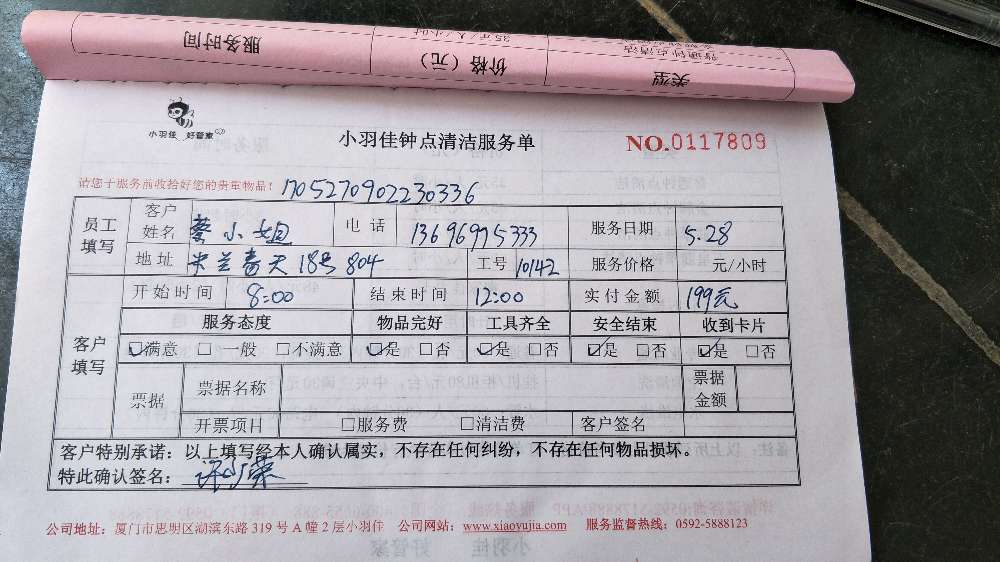 服务时间 价格（元） 类型
35元/人/小时 普通钟点清洁
小羽佳 好管家
小羽佳钟点清洁服务单
NO.0117809
请您于服务前收拾好您的贵重物品！ 170527090230336
员工填写 客户姓名 蔡小姐 电话 13696975333 服务日期 5.28
地址 米兰春天18号804 工号 10142 服务价格 元/小时
开始时间 8:00 结束时间 12:00 实付金额 199元
客户填写 服务态度 物品完好 工具齐全 安全结束 收到卡片
☑满意 □一般 □不满意 ☑是 □否 ☑是 □否 ☑是 □否 ☑是 □否
票据 票据名称 票据金额
开票项目 □服务费 □清洁费 客户签名
客户特别承诺：以上填写经本人确认属实，不存在任何纠纷，不存在任何物品损坏。
特此确认签名：
公司地址：厦门市思明区湖滨东路 319 号 A 幢 2 层小羽佳 公司网站：www.xiaoyujia.com 服务监督热线：0592-5888123